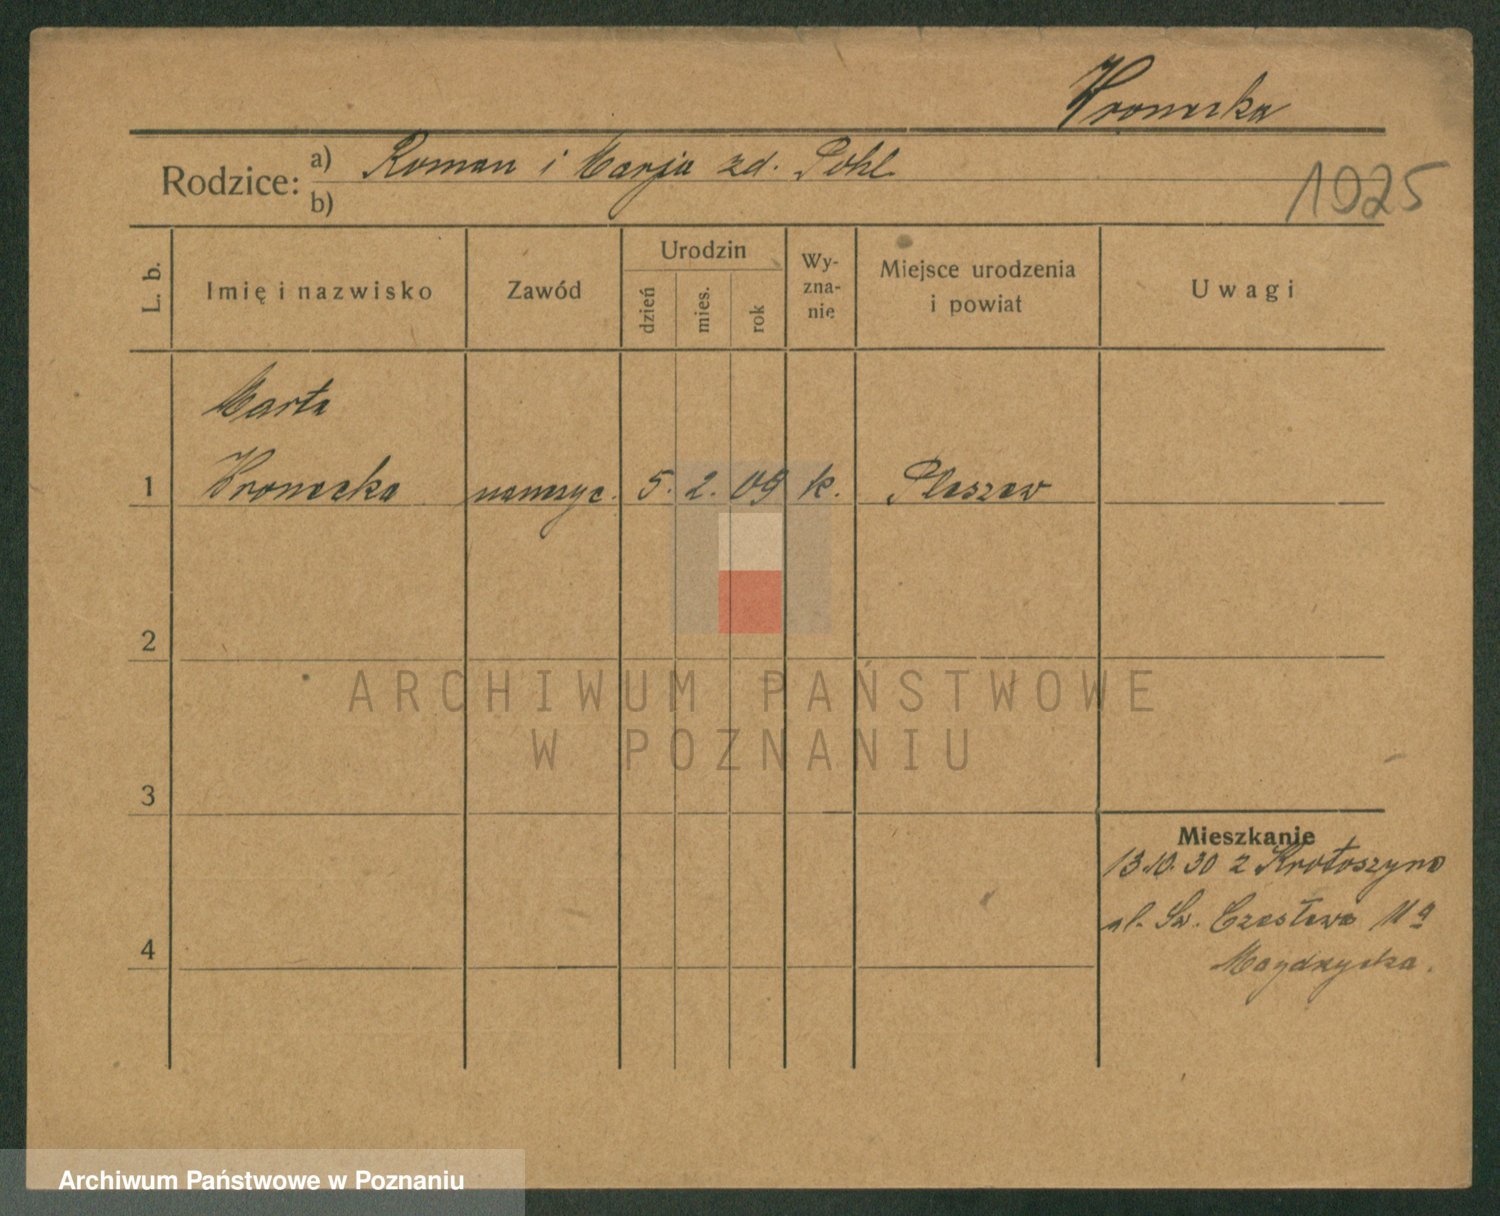 Wronecka
Rodzice: a) Roman i Marja zd. Pohl
b)
1925
L. b.
Imię i nazwisko
Zawód
Urodzin
dzień
mies.
rok
Wy-
zna-
nie
Miejsce urodzenia
i powiat
Uwagi
Marta
1 Wronecka nauczyc. 5. 2. 09 k. Pleszew
2
3
4
Mieszkanie
13.10.30 z Krotoszyna
ul. Św. Czesława 11a
ARCHIWUM PAŃSTWOWE
W POZNANIU
Archiwum Państwowe w Poznaniu